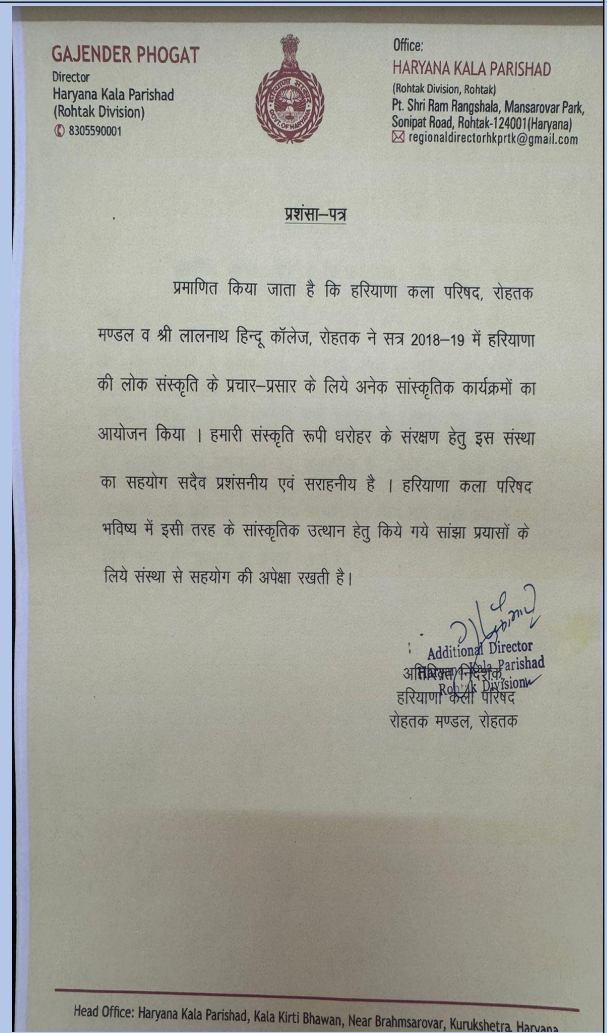 GAJENDER PHOGAT
Director
Haryana Kala Parishad
(Rohtak Division)
8305590001
Office:
HARYANA KALA PARISHAD
(Rohtak Division, Rohtak)
Pt. Shri Ram Rangshala, Mansarovar Park,
Sonipat Road, Rohtak-124001(Haryana)
regionaldirectorhkprtk@gmail.com
GOVT. OF HARYANA
प्रशंसा–पत्र
प्रमाणित किया जाता है कि हरियाणा कला परिषद, रोहतक
मण्डल व श्री लालनाथ हिन्दू कॉलेज, रोहतक ने सत्र 2018–19 में हरियाणा
की लोक संस्कृति के प्रचार–प्रसार के लिये अनेक सांस्कृतिक कार्यक्रमों का
आयोजन किया । हमारी संस्कृति रूपी धरोहर के संरक्षण हेतु इस संस्था
का सहयोग सदैव प्रशंसनीय एवं सराहनीय है । हरियाणा कला परिषद
भविष्य में इसी तरह के सांस्कृतिक उत्थान हेतु किये गये सांझा प्रयासों के
लिये संस्था से सहयोग की अपेक्षा रखती है।
Additional Director
Kala Parishad
Rohtak Division
अतिरिक्त निदेशक,
हरियाणा कला परिषद
रोहतक मण्डल, रोहतक
Head Office: Haryana Kala Parishad, Kala Kirti Bhawan, Near Brahmsarovar, Kurukshetra, Haryana